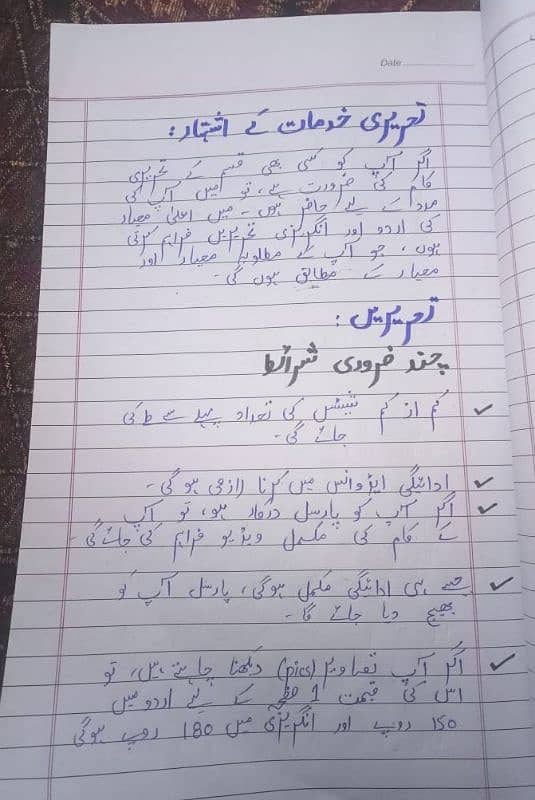 Date
تحریری خدمات کے اشتہار:
اگر آپ کو کسی بھی قسم کے تحریری
کام کی ضرورت ہے، تو میں آپ کی
مدد کے لیے حاضر ہوں - میں اعلیٰ معیار
کی اردو اور انگریزی تحریریں فراہم کرتی
ہوں، جو آپ کے مطلوبہ معیار اور
معیار کے مطابق ہوں گی -
تحریریں:
چند ضروری شرائط
✓ کم از کم شیٹس کی تعداد پہلے سے طے کی
جائے گی -
✓ ادائیگی ایڈوانس میں کرنا لازمی ہو گی -
✓ اگر آپ کو پارسل درکار ہو، تو آپ
کے کام کی مکمل ویڈیو فراہم کی جائے گی -
✓ جیسے ہی ادائیگی مکمل ہوگی، پارسل آپ کو
بھیج دیا جائے گا -
✓ اگر آپ تصاویر (pics) دیکھنا چاہتے ہیں، تو
اس کی قیمت 1 صفحہ کے لیے اردو میں
150 روپے اور انگریزی میں 180 روپے ہوگی